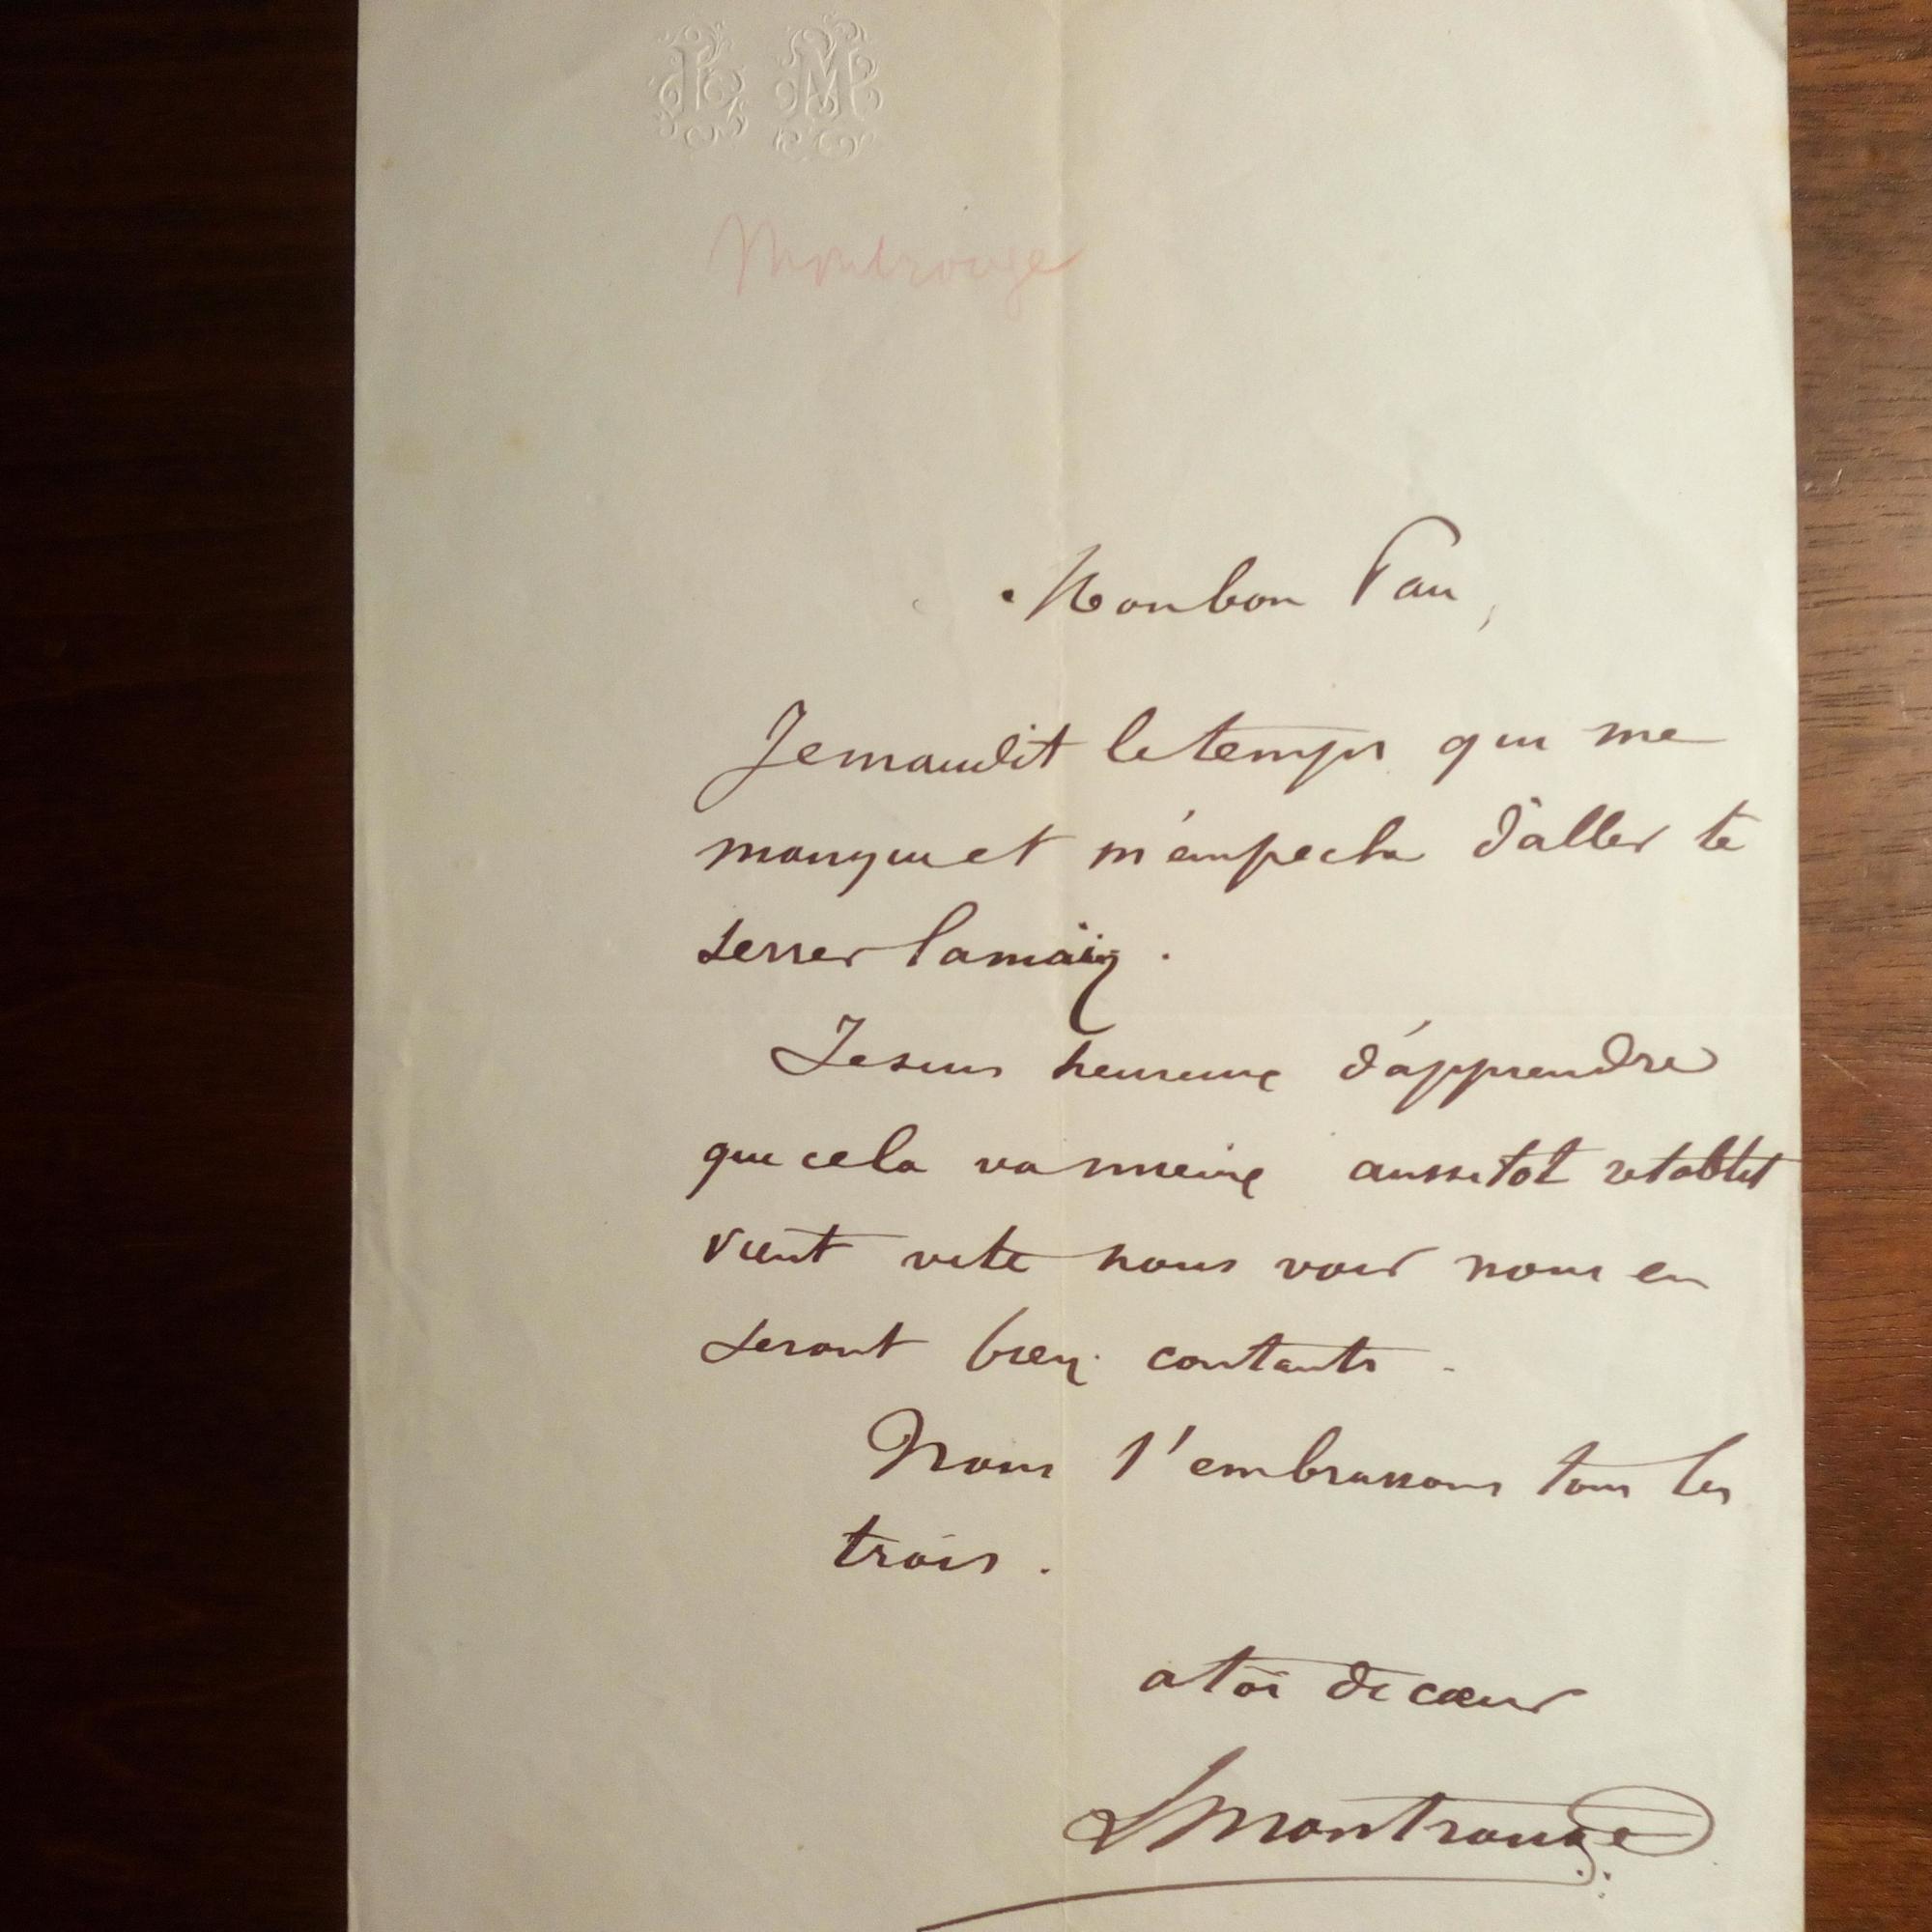 L M
Montrouge
Mon bon Pau,
Je maudit le temps qui me
manque et m'empeche d'aller te
serrer la main.
Je suis heureux d'apprendre
que cela va mieux aussitot retablit
vient vite nous voir nous en
seront bien contants.
Nous t'embrassons tous les
trois.
a toi de cœur
LMontrouge